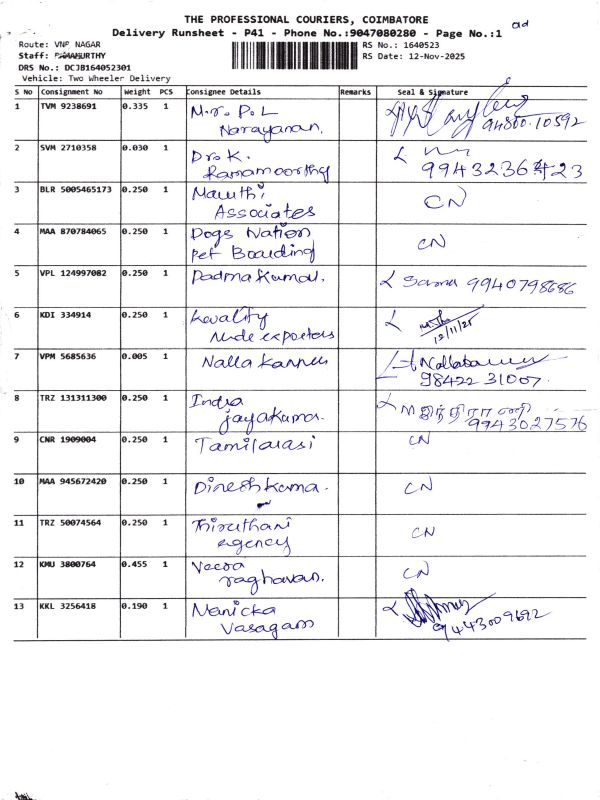 THE PROFESSIONAL COURIERS, COIMBATORE
Delivery Runsheet - P41 - Phone No.:9047080280 - Page No.:1
Route: VNP NAGAR
RS No.: 1640523
Staff:
RS Date: 12-Nov-2025
DRS No.: DCJB164052301
Vehicle: Two Wheeler Delivery
S No Consignment No Weight PCS Consignee Details Remarks Seal & Signature
1 TVM 9238691 0.335 1 Mr. P. L
Narayanan. 94800.10592
2 SVM 2710358 0.030 1 Dr. K.
Ramamoorthy
3 BLR 5005465173 0.250 1 Maruthi CN
Associates
4 MAA 870784065 0.250 1 Dogs Nation CN
Pet Boarding
5 VPL 124997082 0.250 1 Padmakumar. 9940798686
6 KDI 334914 0.250 1 Kwality
exporters 12/11/25
7 VPM 5685636 0.005 1 Nalla Kannu
98422 31007.
8 TRZ 131311300 0.250 1 Indra இந்திராணி
jayakumar. 9943027576
9 CNR 1909004 0.250 1 Tamilarasi CN
10 MAA 945672420 0.250 1 Dineshkumar. CN
11 TRZ 50074564 0.250 1 Thiruthani CN
agency
12 KMU 3800764 0.455 1 Veera CN
raghavan.
13 KKL 3256418 0.190 1 Manicka
Vasagam 9443009692